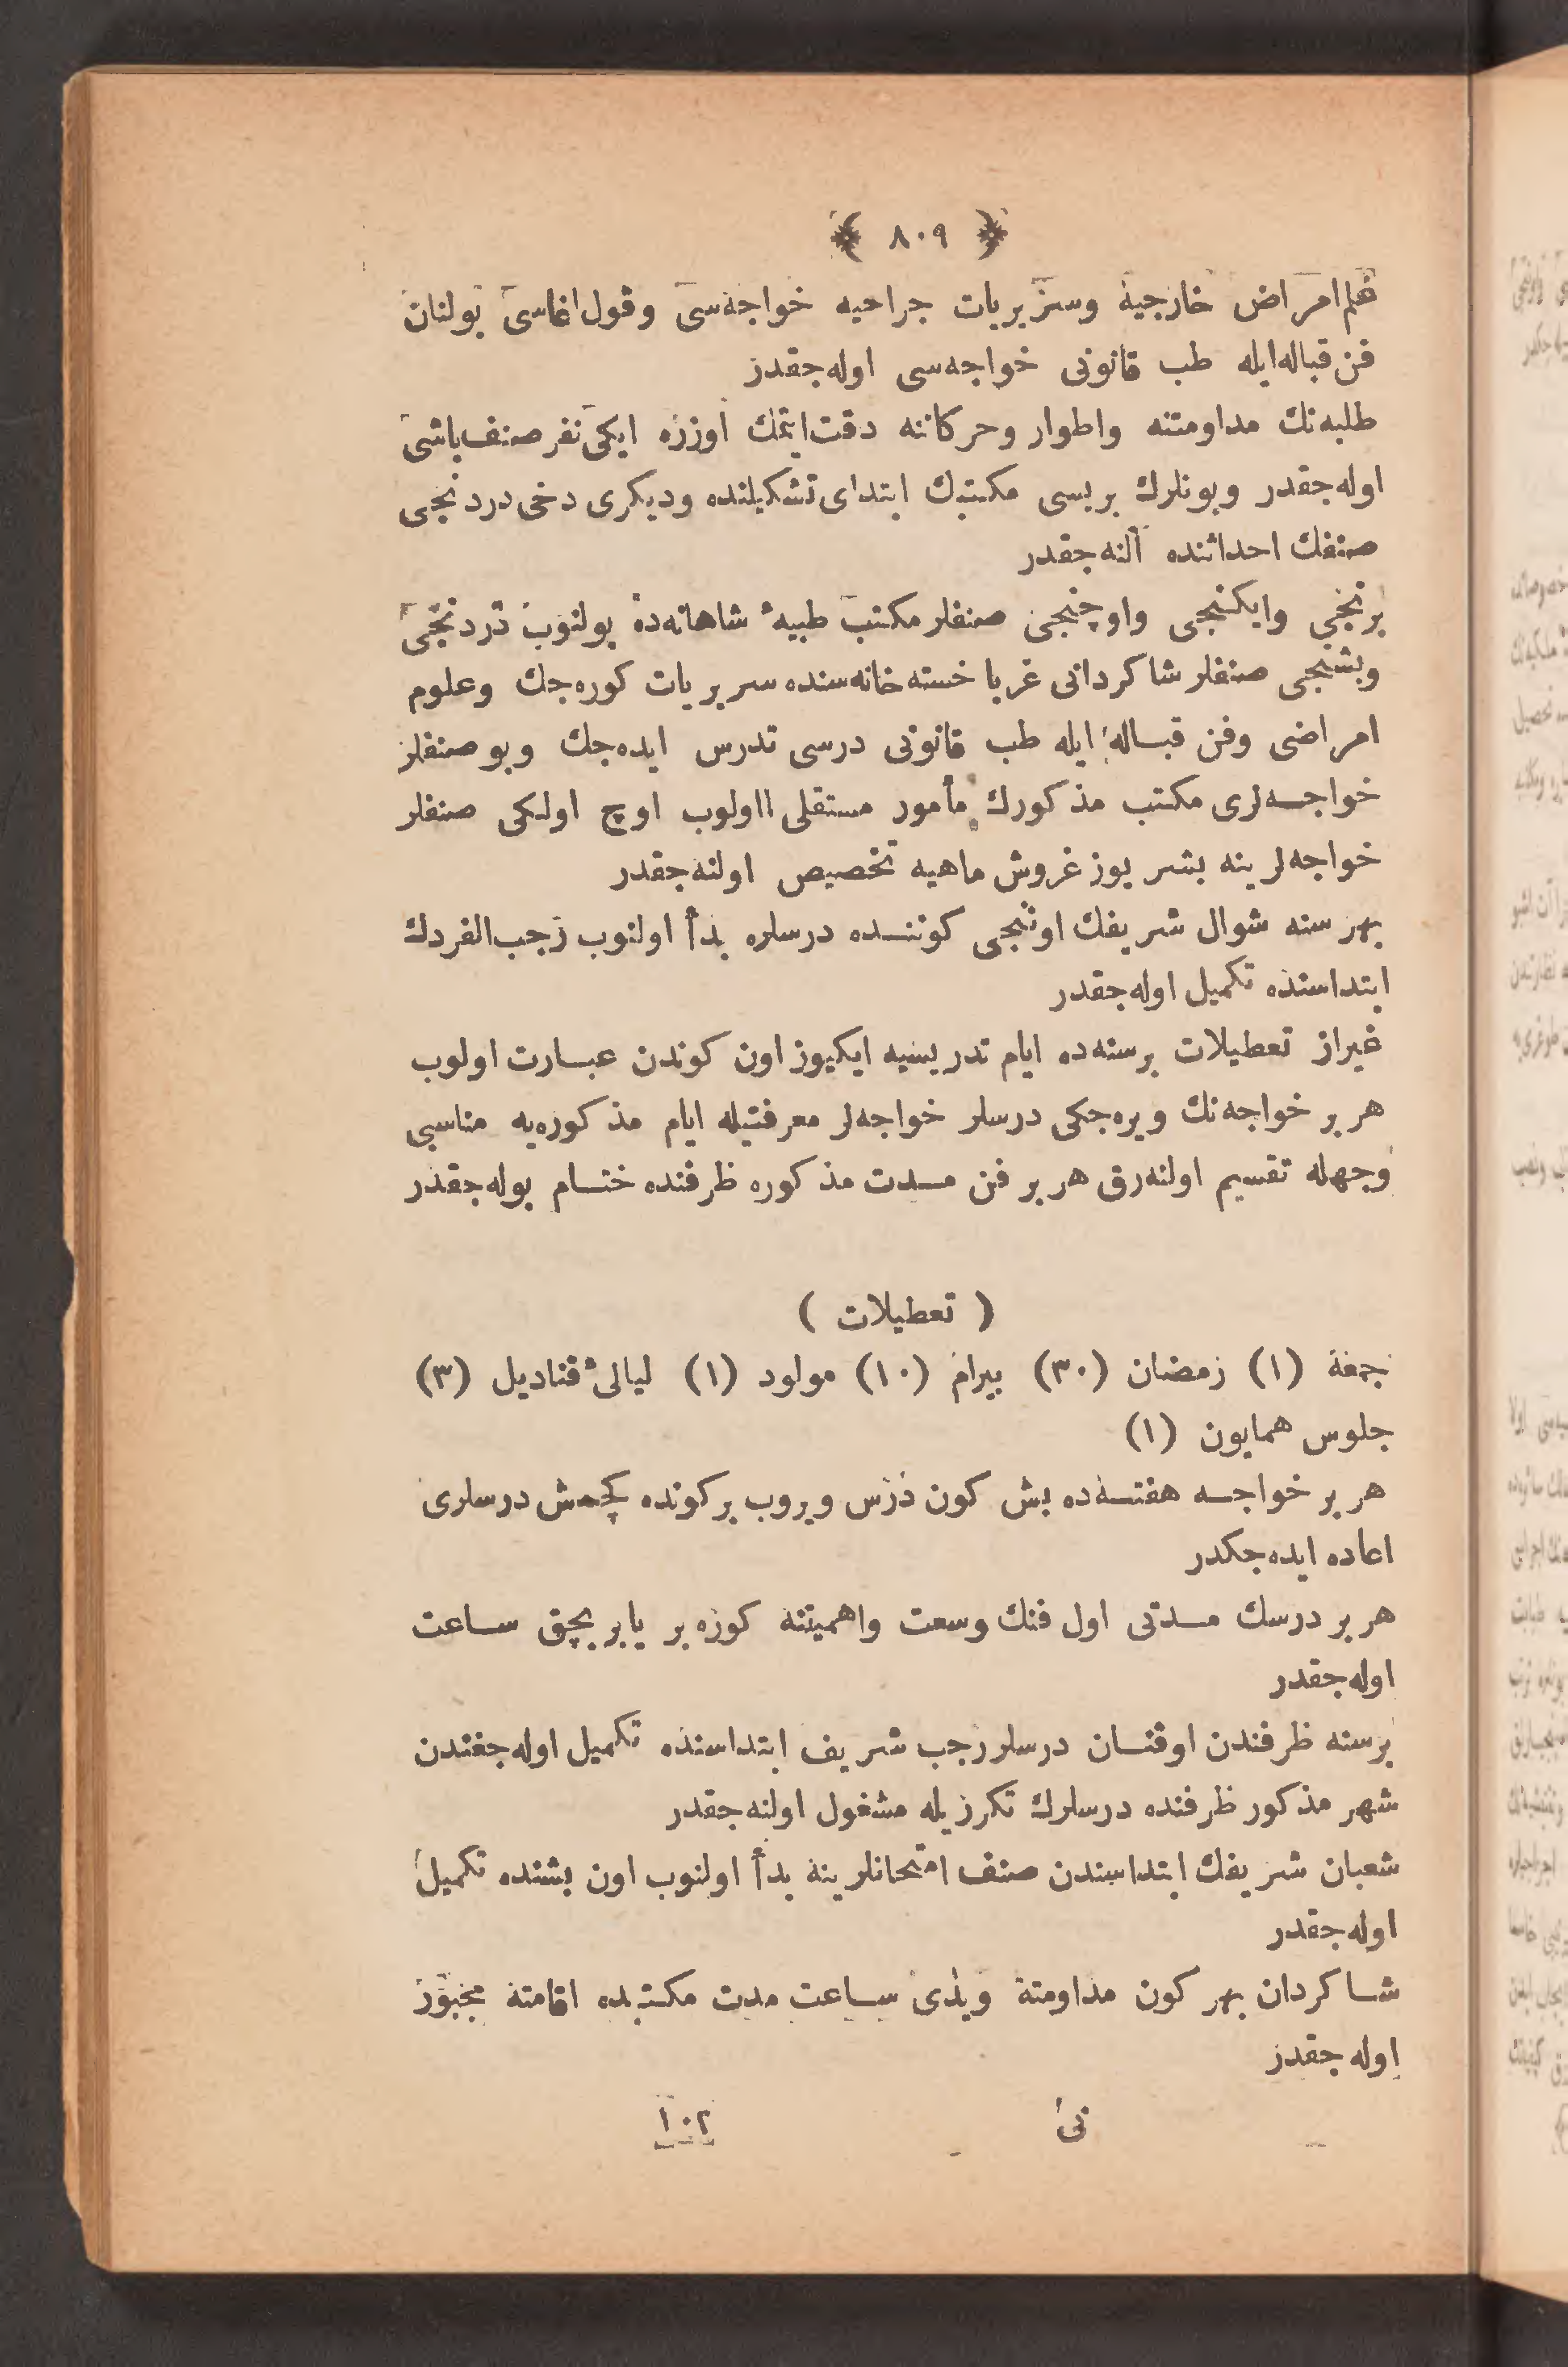 ﴿ ٨٠٩ ﴾
هم امراض خارجیه وسریریات جراحیه خواجه‌سی وقول اغاسی بولنان
فن قباله ایله طب قانونی خواجه‌سی اوله‌جقدر
طلبه‌نك مداومتنه واطوار وحرکاتنه دقت ایتمك اوزره ایکی نفر صنف باشی
اوله‌جقدر وبونلرك بریسی مکتبك ابتدای تشکیلنده ودیکری دخی دردنجی
صنفك احداثنده آلنه‌جقدر
برنجی وایکنجی واوچنجی صنفلر مکتب طبیۀ شاهانه‌ده بولنوب دردنجی
وبشنجی صنفلر شاکردانی غربا خسته‌خانه‌سنده سریریات کوره‌جك وعلوم
امراضی وفن قباله ایله طب قانونی درسی تدرس ایده‌جك وبو صنفلر
خواجه‌لری مکتب مذکورك مأمور مستقلی اولوب اوچ اولکی صنفلر
خواجه‌لرینه بشر یوز غروش ماهیه تخصیص اولنه‌جقدر
بهر سنه شوال شریفك اوننجی کوننده درسلره بدأ اولنوب رجب‌الفردك
ابتداسنده تکمیل اوله‌جقدر
غیراز تعطیلات برسنه‌ده ایام تدریسیه ایکیوز اون کوندن عبارت اولوب
هر بر خواجه‌نك ویره‌جکی درسلر خواجه‌لر معرفتیله ایام مذکوره‌یه مناسبی
وجهله تقسیم اولنه‌رق هر بر فن مدت مذکوره ظرفنده ختام بوله‌جقدر
( تعطیلات )
جمعه (١) رمضان (٣٠) بیرام (١٠) مولود (١) لیالیٔ قنادیل (٣)
جلوس همایون (١)
هر بر خواجه هفته‌ده بش کون درس ویروب برکونده کچمش درسلری
اعاده ایده‌جکدر
هر بر درسك مدتی اول فنك وسعت واهمیتنه کوره بر یابر بچق ساعت
اوله‌جقدر
برسنه ظرفندن اوقنان درسلر رجب شریف ابتداسنده تکمیل اوله‌جغندن
شهر مذکور ظرفنده درسلرك تکرریله مشغول اولنه‌جقدر
شعبان شریفك ابتداسندن صنف امتحانلرینه بدأ اولنوب اون بشنده تکمیل
اوله‌جقدر
شاکردان بهر کون مداومته ویدی ساعت مدت مکتبده اقامته مجبور
اوله‌جقدر
نی ١٠٢